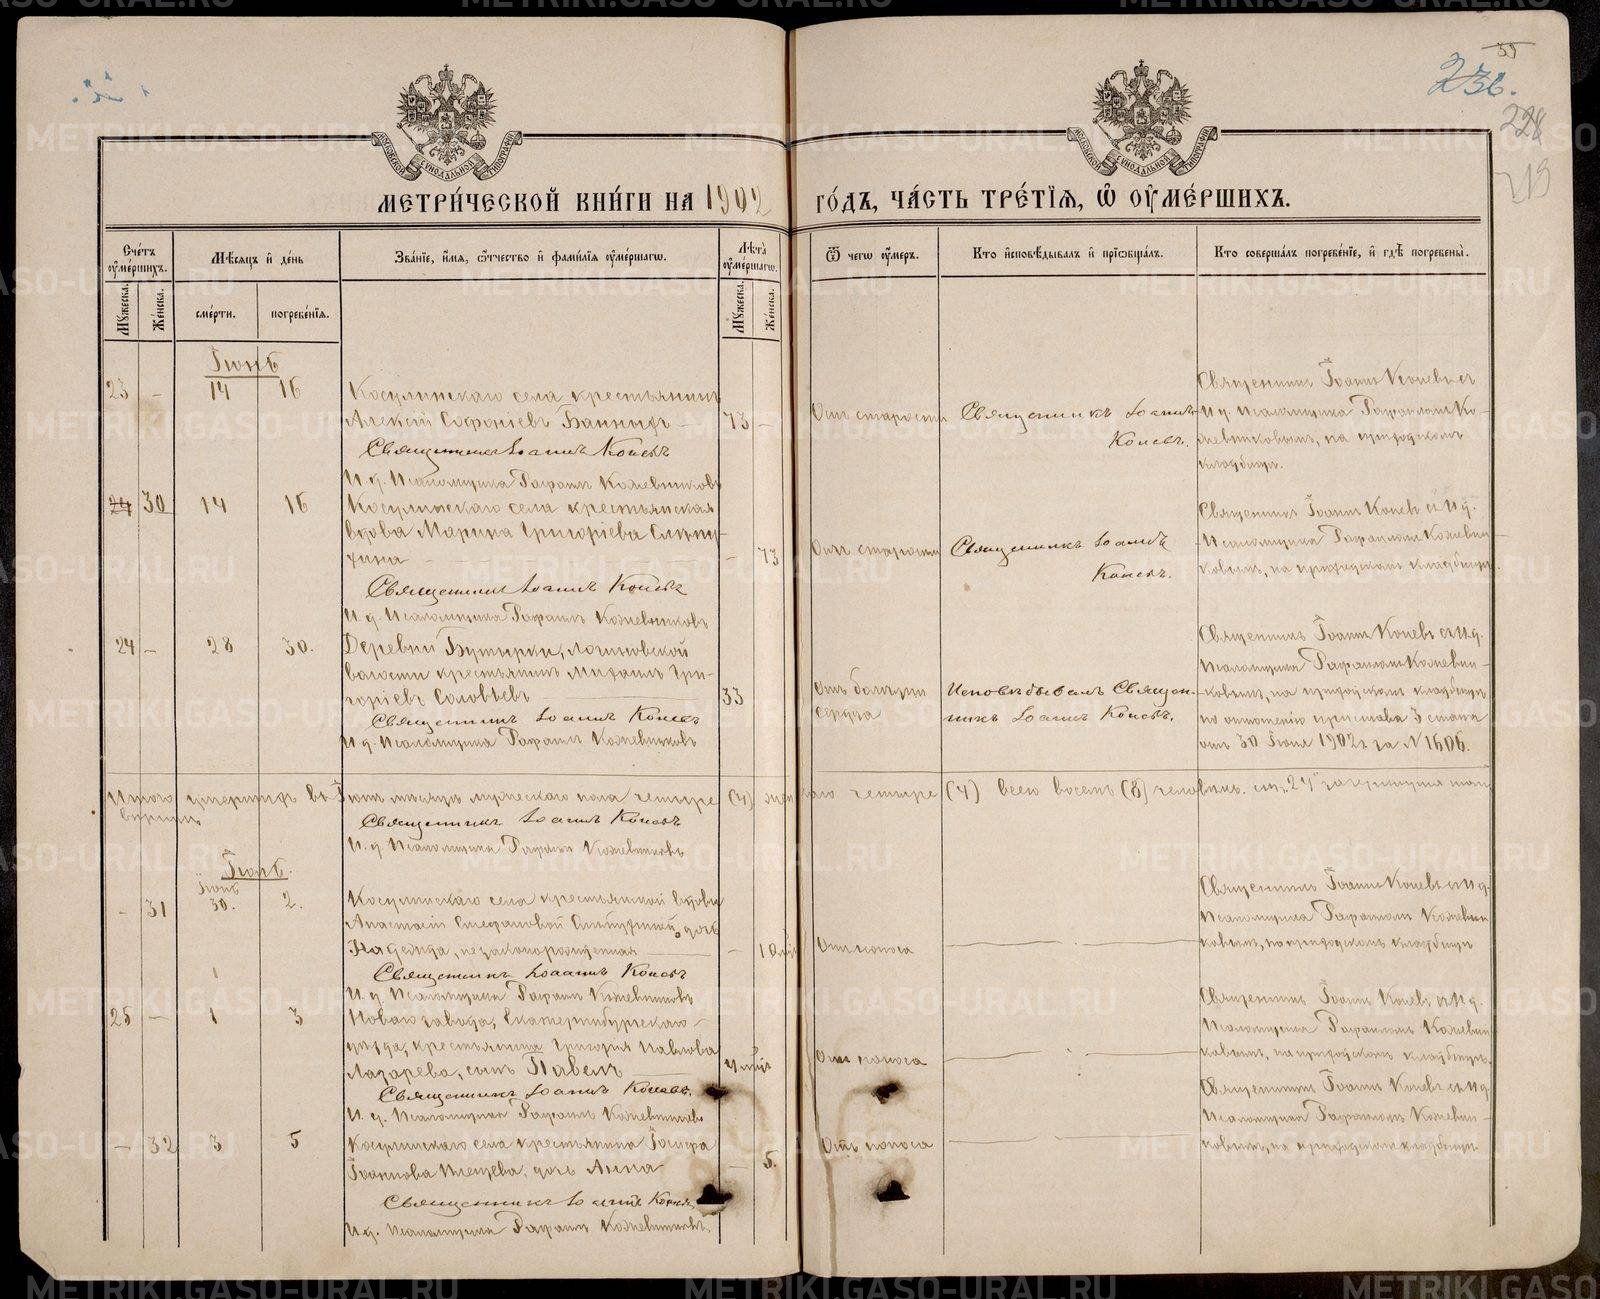 35
236.
228
219
МОСКОВСКОЙ СѴНОДАЛЬНОЙ ТИПОГРАФІИ
МОСКОВСКОЙ СѴНОДАЛЬНОЙ ТИПОГРАФІИ
МЕТРИ́ЧЕСКОЙ КНИ́ГИ НА 1902 ГО́ДЪ, ЧА́СТЬ ТРЕ́ТІѦ, Ѡ҆ ОУ҆МЕ́РШИХЪ.
Сче́тъ оу҆ме́ршихъ.
Мѣ́сяцъ и҆ де́нь
Зва́нїе, и҆́мя, ѻ҆́тчество и҆ фами́лїя оу҆ме́ршагѡ.
Лѣ́та оу҆ме́ршагѡ.
Ѿ чегѡ̀ оу҆́меръ.
Кто̀ и҆сповѣ́дывалъ и҆ прїѡбща́лъ.
Кто̀ соверша́лъ погребе́нїе, и҆ гдѣ̀ погребены̀.
Мꙋ́жеска.
Же́нска.
сме́рти.
погребе́нїя.
Мꙋ́жеска.
Же́нска.
Іюнь
23 - 14 16
Косулинскаго села крестьянинъ
Алексій Софоніевъ Банныхъ
73 -
Священникъ Іоаннъ Коневъ
И. д. Псаломщика Рафаилъ Кожевниковъ
Отъ старости
Священникъ Іоаннъ
Коневъ.
Священникъ Іоаннъ Коневъ съ
И д. псаломщика Рафаиломъ Ко-
жевниковымъ, на приходскомъ
кладбищѣ.
24 30 14 16
Косулинскаго села крестьянская
вдова Марина Григоріева
- 73
Священникъ Іоаннъ Коневъ
И. д. Псаломщика Рафаилъ Кожевниковъ
Отъ старости
Священникъ Іоаннъ
Коневъ.
Священникъ Іоаннъ Коневъ съ И д.
Псаломщика Рафаиломъ Кожевни-
ковымъ, на приходскомъ кладбищѣ.
24 - 28 30.
Деревни Бутырки, Логиновской
волости крестьянинъ Михаилъ Гри-
горіевъ Соловьевъ
33
Священникъ Іоаннъ Коневъ
И д. Псаломщика Рафаилъ Кожевниковъ
Отъ болѣзни
сердца
Исповѣдывалъ Священ-
никъ Іоаннъ Коневъ.
Священникъ Іоаннъ Коневъ съ И д.
Псаломщика Рафаиломъ Кожевни-
ковымъ, на приходскомъ кладбищѣ
по отношенію пристава 3 стана
отъ 30 Іюня 1902 г. за № 1606.
Итого умершихъ въ Іюнѣ мѣсяцѣ мужескаго пола четыре (4) женскаго четыре (4) всего восемь (8) человѣкъ.
Священникъ Іоаннъ Коневъ
И. д. Псаломщика Рафаилъ Кожевниковъ
Іюль.
Іюнь
- 31 30. 2.
Косулинскаго села крестьянской вдовы
Анастасіи Стефановой дочь
Надежда, незаконорожденная
Священникъ Іоаннъ Коневъ
И. д. Псаломщика Рафаилъ Кожевниковъ
Отъ поноса
Священникъ Іоаннъ Коневъ съ И д.
Псаломщика Рафаиломъ Кожевни-
ковымъ, на приходскомъ кладбищѣ
25 - 1 3
Новаго завода, Екатеринбургскаго
уѣзда, крестьянина Григорія Павлова
Лазарева, сынъ Павелъ
Священникъ Іоаннъ Коневъ.
И. д. Псаломщика Рафаилъ Кожевниковъ
Отъ поноса
Священникъ Іоаннъ Коневъ съ И д.
Псаломщика Рафаиломъ Кожевни-
ковымъ, на приходскомъ кладбищѣ.
- 32 3 5
Косулинскаго села крестьянина Іосифа
Іоаннова дочь Анна
- 5.
Священникъ Іоаннъ Коневъ
И д. Псаломщика Рафаилъ Кожевниковъ.
Отъ поноса
Священникъ Іоаннъ Коневъ съ И д.
Псаломщика Рафаиломъ Кожевни-
ковымъ, на приходскомъ кладбищѣ
METRIKI.GASO-URAL.RU